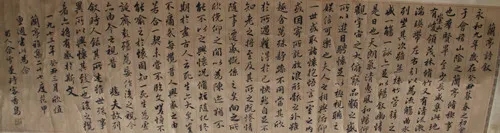 蘭亭詩敘
永和九年歲在癸丑暮春之初
會于會稽山陰之蘭亭脩禊事
也羣賢畢至少長咸集此地有
崇山峻領茂林脩竹又有清流激
湍暎帶左右引以為流觴曲水
列坐其次雖無絲竹管絃之盛
一觴一詠亦足以暢敘幽情
是日也天朗氣清惠風和暢仰
觀宇宙之大俯察品類之盛
所以遊目騁懷足以極視聽之
娛信可樂也夫人之相與俯仰
一世或取諸懷抱悟言一室之內
或因寄所託放浪形骸之外雖
趣舍萬殊靜躁不同當其欣
於所遇暫得於己快然自足不
知老之將至及其所之既惓情
隨事遷感慨係之矣向之所
欣俛仰之間以為陳迹猶不
能不以之興懷況脩短隨化終
期於盡古人云死生亦大矣豈
不痛哉每攬昔人興感之由
若合一契未嘗不臨文嗟悼不
能喻之於懷固知一死生為虛
誕齊彭殤為妄作後之視今
亦由今之視昔悲夫故列
敘時人錄其所述雖世殊事
異所以興懷其致一也後之攬
者亦將有感於斯文